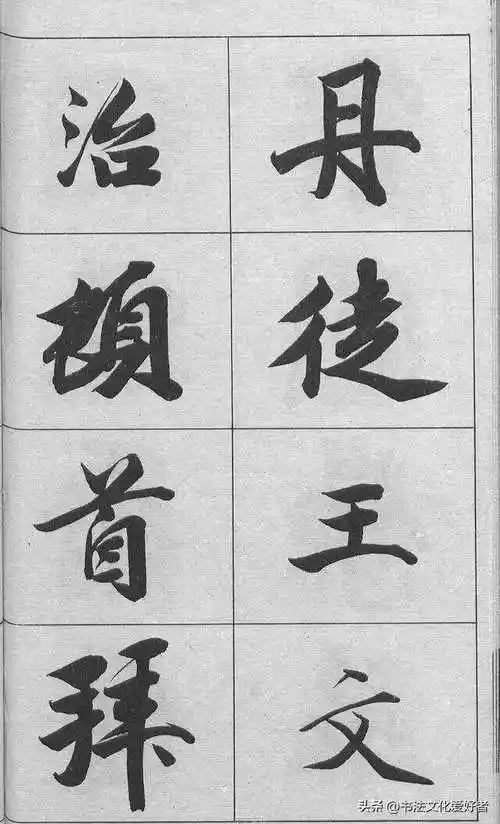 丹徒王文
治頓首拜
头条@书法文化爱好者